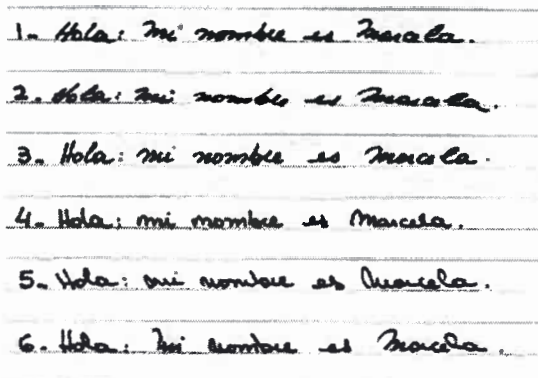 1- Hola: mi nombre es Marcela.
2. Hola: mi nombre es Marcela.
3- Hola: mi nombre es Marcela.
4- Hola: mi nombre es Marcela.
5- Hola: mi nombre es Marcela.
6- Hola: mi nombre es Marcela.